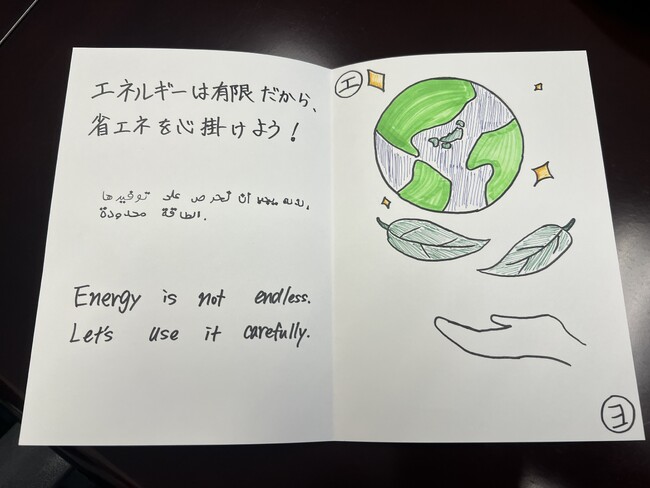 エネルギーは有限だから、
省エネを心掛けよう!
أن نحرص على توفيرها
الطاقة محدودة.
Energy is not endless.
Let's use it carefully.
エ
ヨ